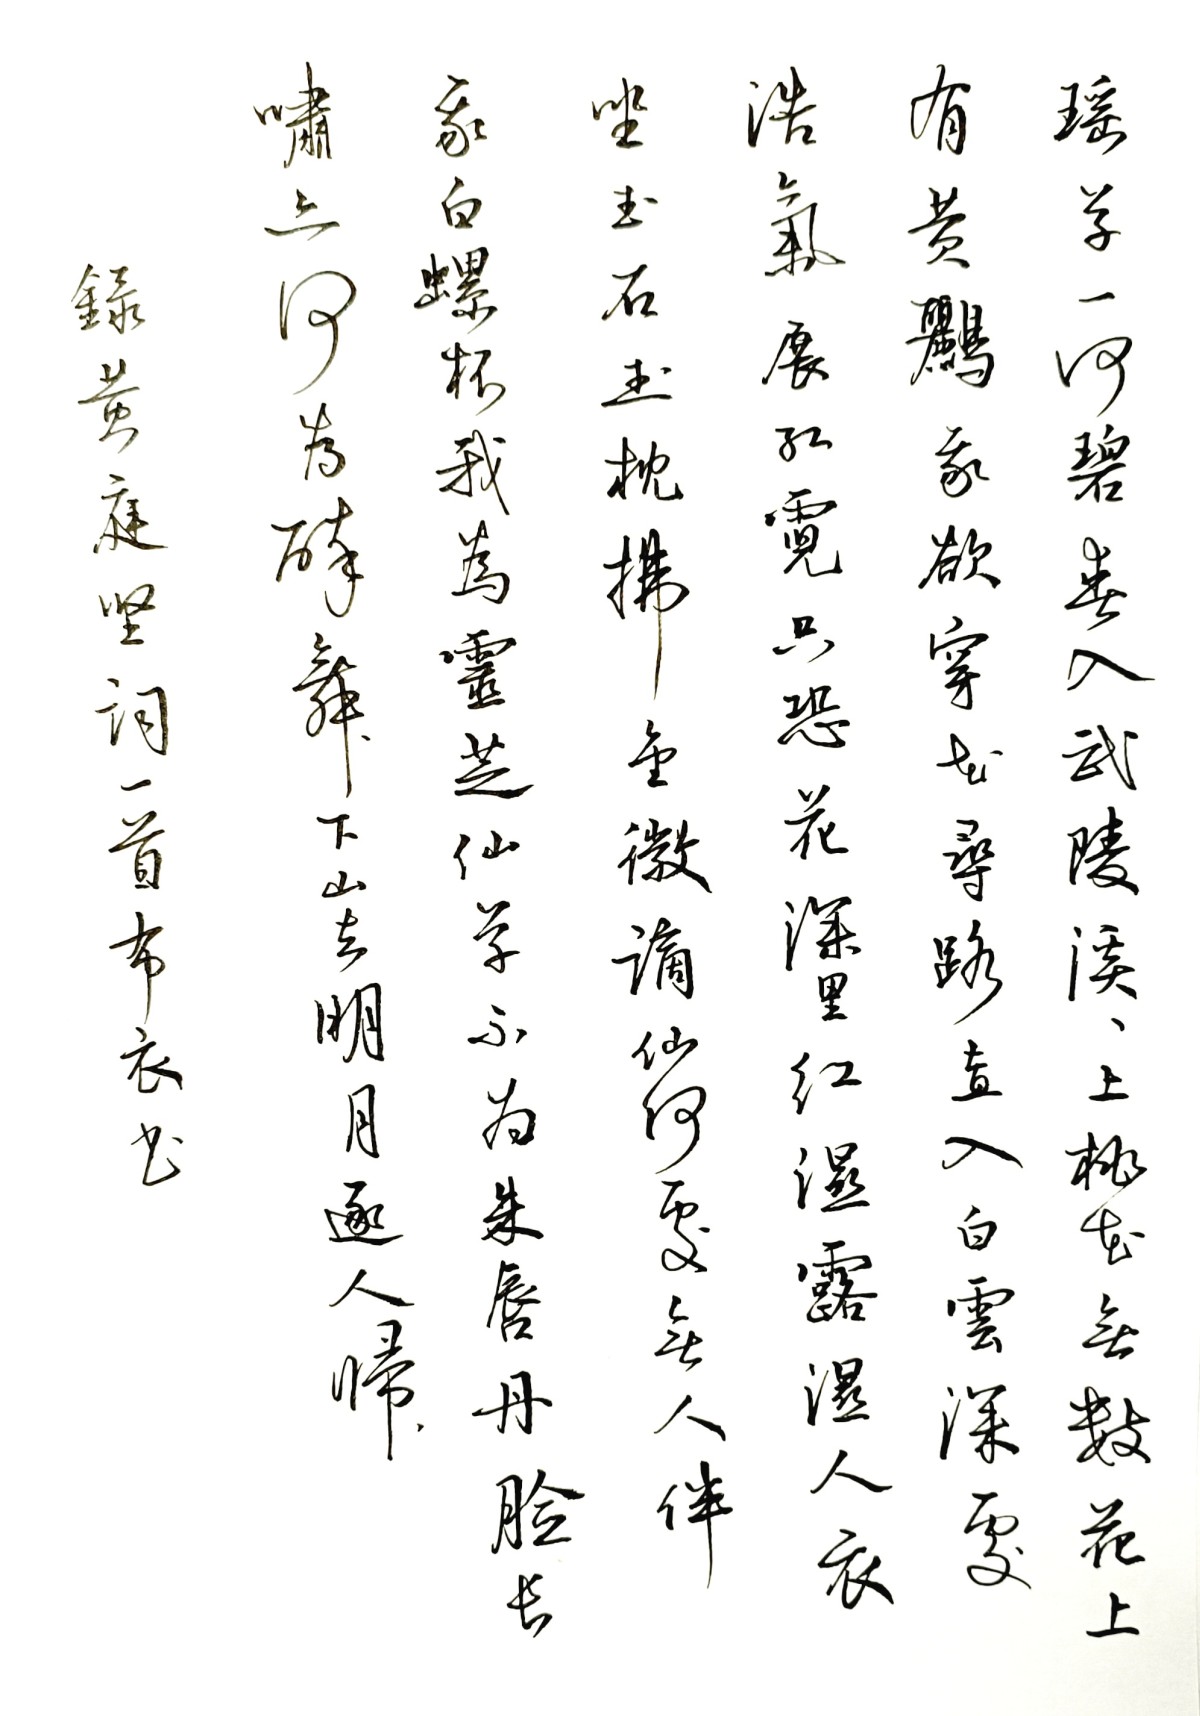 瑶草一何碧春入武陵溪、上桃花無數花上
有黄鸝我欲穿花尋路直入白雲深處
浩氣展虹霓只恐花深里红濕露濕人衣
坐玉石玉枕拂金徽謫仙何處無人伴
我白螺杯我為靈芝仙草不为朱唇丹臉长
嘯亦何为醉舞下山去明月逐人歸
録黄庭坚词一首布衣书